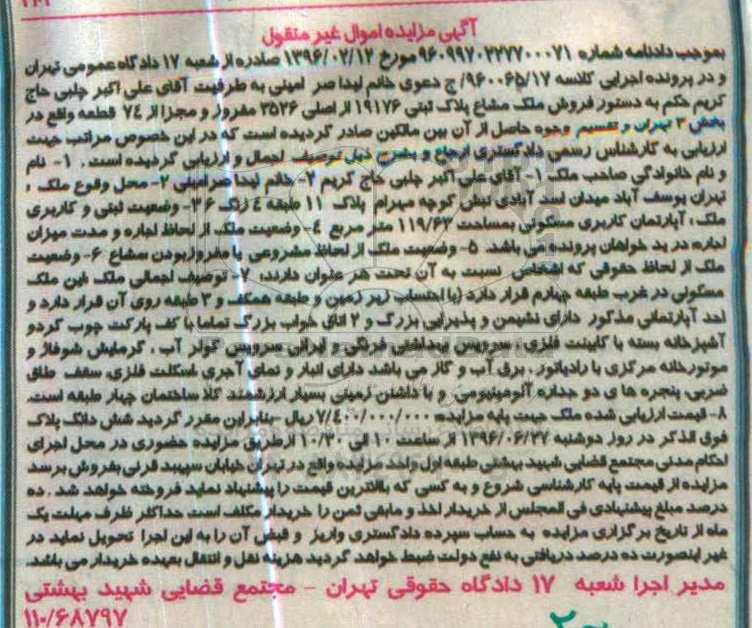 آگهی مزایده اموال غیر منقول
بموجب دادنامه شماره ۹۶۰۹۹۷۰۲۲۷۷۰۰۰۷۱ مورخ ۱۳۹۶/۰۲/۱۲ صادره از شعبه ۱۷ دادگاه عمومی تهران
و در پرونده اجرایی کلاسه ۹۶۰۰۶۵/۱۷/ج دعوی خانم لیدا صر امینی به طرفیت آقای علی اکبر چلبی حاج
کریم حکم به دستور فروش ملک مشاع پلاک ثبتی ۱۹۱۷۶ از اصلی ۳۵۲۶ مفروز و مجزا از ۷۴ قطعه واقع در
بخش ۳ تهران و تقسیم وجوه حاصل از آن بین مالکین صادر گردیده است که در این خصوص مراتب جهت
ارزیابی به کارشناس رسمی دادگستری ارجاع و بشرح ذیل توصیف اجمال و ارزیابی گردیده است . ۱- نام
و نام خانوادگی صاحب ملک ۱- آقای علی اکبر چلبی حاج کریم ۲- خانم لیدا صر امینی ۲- محل وقوع ملک ،
تهران یوسف آباد میدان اسد آبادی نبش کوچه مهرام پلاک ۱۱ طبقه ۴ زنگ ۳۶- وضعیت ثبتی و کاربری
ملک ، آپارتمان کاربری مسکونی بمساحت ۱۱۹/۶۳ متر مربع ۴- وضعیت ملک از لحاظ اجاره و مدت میزان
اجاره در ید خواهان پرونده می باشد. ۵- وضعیت ملک از لحاظ مشروعی یا مفروز بودن بمشاع ۶- وضعیت
ملک از لحاظ حقوقی که اشخاص نسبت به آن تحت هر عنوان دارند، ۷- توصیف اجمالی ملک این ملک
مسکونی در غرب طبقه چهارم قرار دارد (با احتساب زیر زمین و طبقه همکف و ۳ طبقه روی آن قرار دارد و
احد آپارتمانی مذکور دارای نشیمن و پذیرایی بزرگ و ۲ اتاق خواب بزرگ تماما با کف پارکت چوب گردو
آشپزخانه بسته با کابینت فلزی ، سرویس بهداشتی فرنگی و ایرانی سرویس کولر آب ، گرمایش شوفاژ و
موتورخانه مرکزی با رادیاتور ، برق آب و گاز می باشد دارای انبار و نمای آجری اسکلت فلزی، سقف طاق
ضربی، پنجره ها ی دو جداره آلومینیومی و با داشتن زمینی بسیار ارزشمند کلا ساختمان چهار طبقه است.
۸- قیمت ارزیابی شده ملک جهت پایه مزایده ۷/۴۰۰/۰۰۰/۰۰۰ ریال -بنابراین مقرر گردید شش دانگ پلاک
فوق الذکر در روز دوشنبه ۱۳۹۶/۰۶/۲۷ از ساعت ۱۰ الی ۱۰/۳۰ ازطریق مزایده حضوری در محل اجرای
احکام مدنی مجتمع قضایی شهید بهشتی طبقه اول واحد مزایده واقع در تهران خیابان سپهبد قرنی بفروش برسد
مزایده از قیمت پایه کارشناسی شروع و به کسی که بالاترین قیمت را پیشنهاد نماید فروخته خواهد شد . ده
درصد مبلغ پیشنهادی فی المجلس از خریدار اخذ و مابقی ثمن را خریدار مکلف است حداکثر ظرف مهلت یک
ماه از تاریخ برگزاری مزایده به حساب سپرده دادگستری واریز و قبض آن را به این اجرا تحویل نماید در
غیر اینصورت ده درصد دریافتی به نفع دولت ضبط خواهد گردید هزینه نقل و انتقال بعهده خریدار می باشد.
مدیر اجرا شعبه ۱۷ دادگاه حقوقی تهران - مجتمع قضایی شهید بهشتی
۱۱۰/۶۸۷۹۷